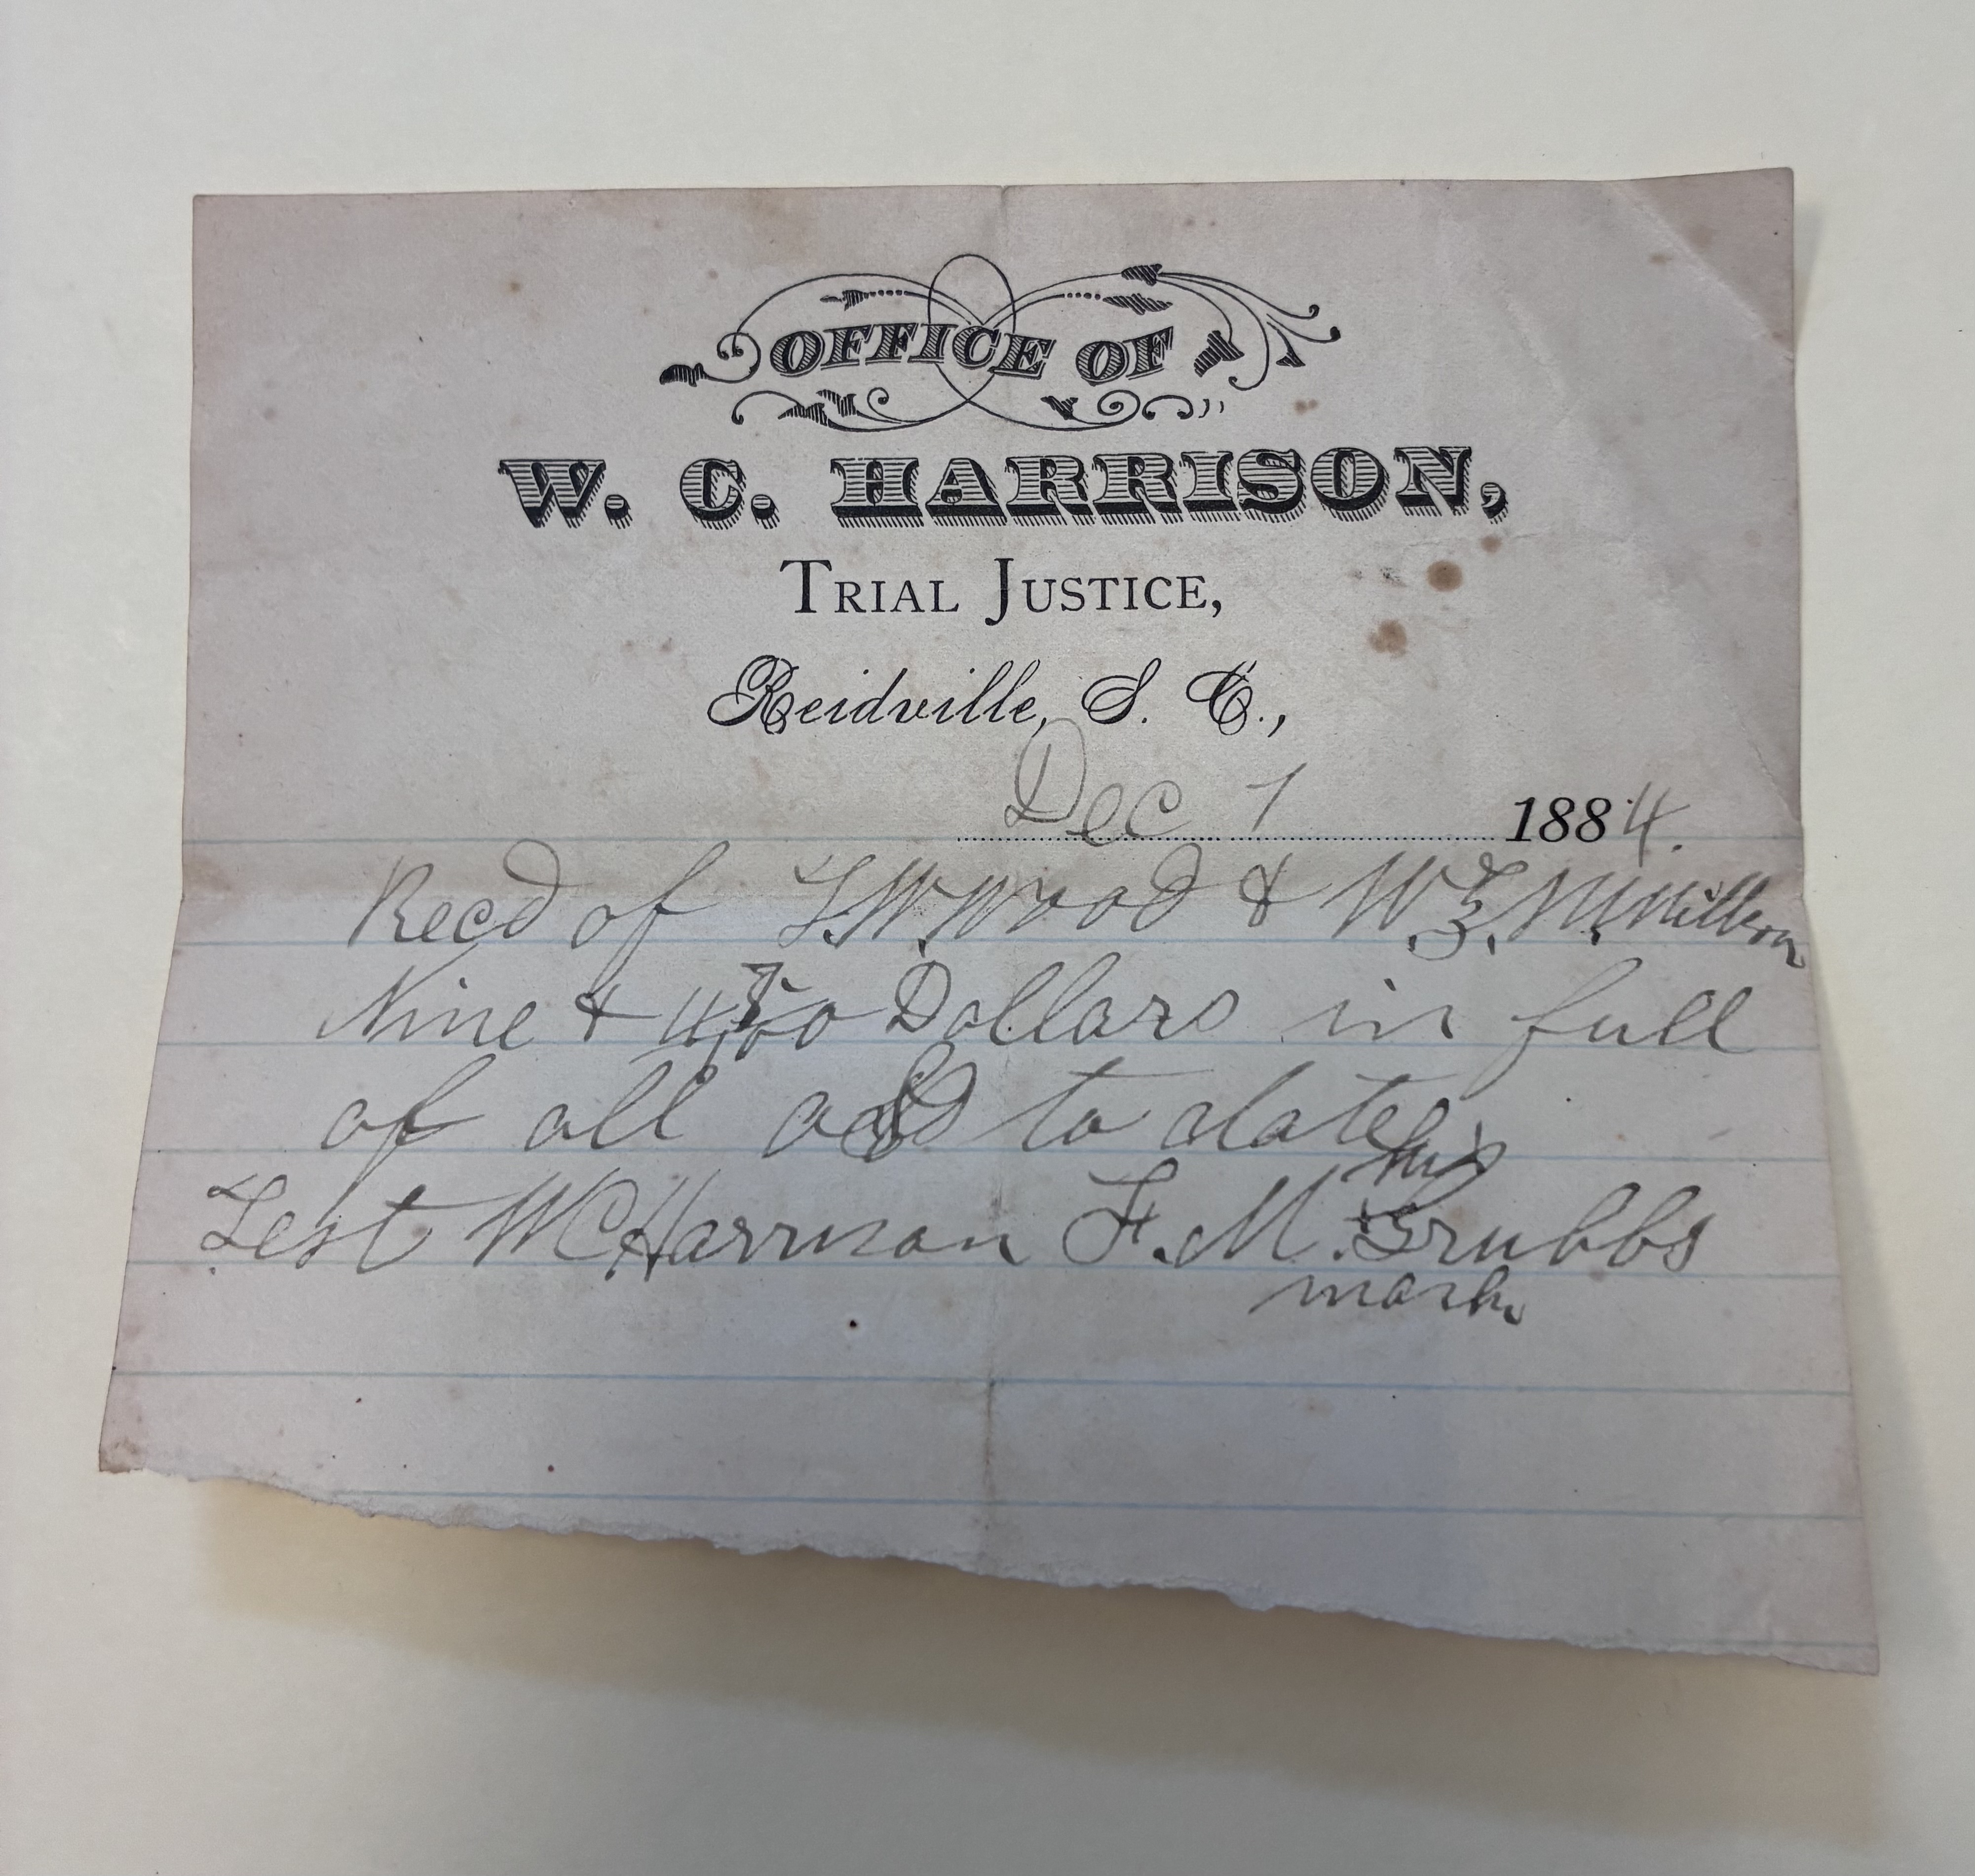 OFFICE OF
W. C. HARRISON,
TRIAL JUSTICE,
Reidville, S. C.,
Dec 1 1884.
Recd of Wood & W.
Nine & Dollars in full
of all to date
his
Test WC Harrison F. M. + Grubbs
mark